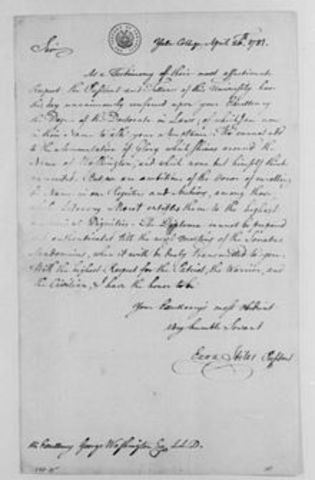 Sir, Yale College April 26th 1781.
As a Testimony of their most affectionate
Respect the President and Fellows of this University have
this day unanimously conferred upon your Excellency
the Degree of the Doctorate in Laws, of which I am now
in their Name to ask your Acceptance. We cannot add
to the Accumulation of Glory which shines around the
Name of Washington, and which none but himself thinks
unmerited. But we are ambitious of the Honor of enrolling
a Name in our Registers and Archives, among those
Literary Merit entitles them to the highest
Dignities. The Diploma cannot be prepared
authenticated till the next meeting of the Senatus
Academicus, when it will be duly transmitted to you.
With the highest Respect for the Patriot, the Warrior, and
the Civilian, I have the honor to be
Your Excellency's most obedient
very humble Servant
Ezra Stiles President
His Excellency George Washington Esq. L.L.D.